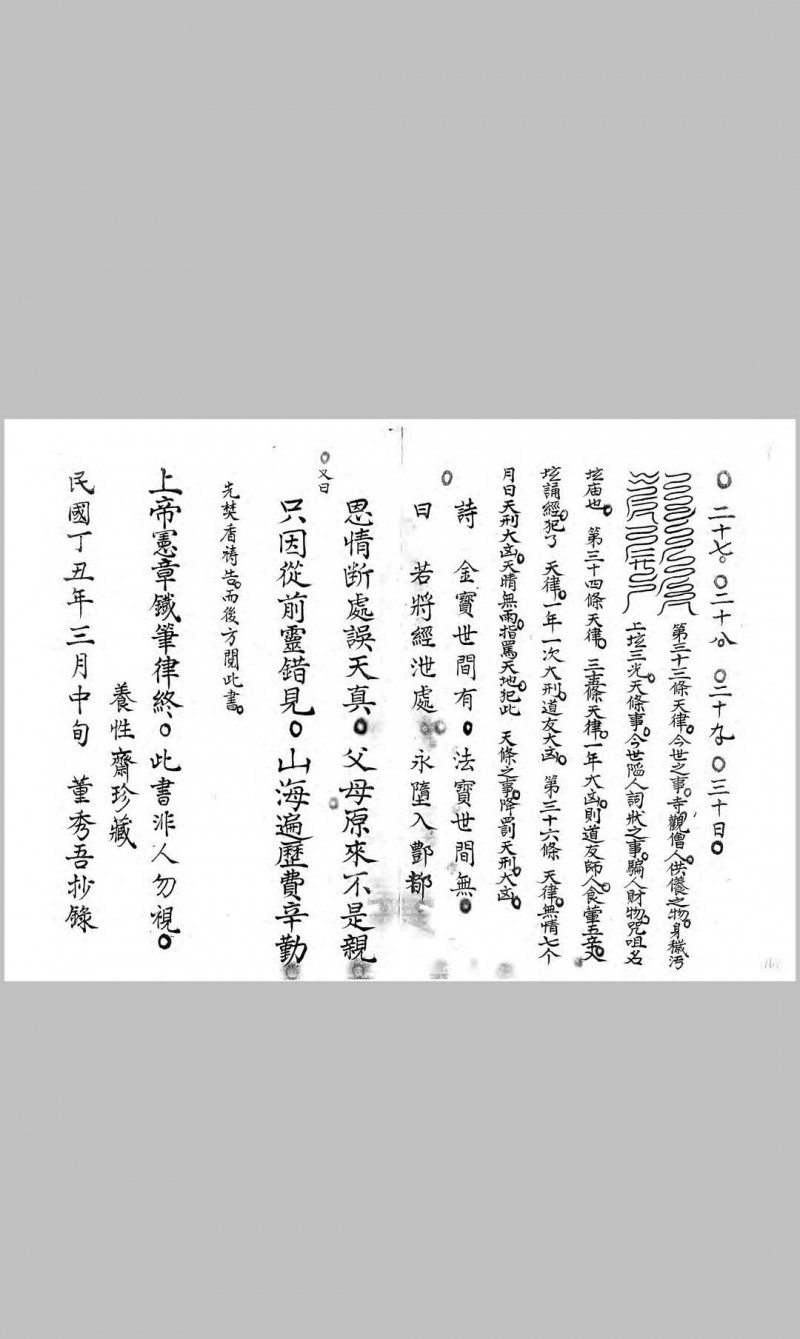 ○二十七。○二十八。○二十九。○三十日○
第三十三條天律。今世之事。寺觀僧人。供儀之物。身穢污
上坛三光。天條事。今世陷人詞狀之事。騙人財物。咒咀名
坛庙也。第三十四條天律。三十五條天律。一年大凶。則道友師人。食葷五辛。
坛誦經。犯了天律。一年一次大刑。道友大凶。第三十六條天律。無情七个
月日天刑大凶。天晴無雨。指罵天地。犯此天條之事。降罰天刑大凶。
詩 金寶世間有。法寶世間無。
○曰 若將經泄處 永墮入酆都
恩情断處誤天真。父母原來不是親
只因從前靈錯見。山海遍歷費辛勤
○又曰
先焚香禱告。而後方閱此書。
上帝憲章鐵筆律終。此書非人勿視。
養性齋珍藏
民國丁丑年三月中旬 董秀吾抄錄
16